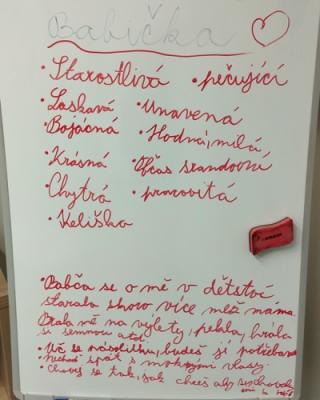 Babička
• Starostlivá • pečující
• Laskavá • Unavená
• Bojácná • Hodná, milá
• Krásná • Občas srandovní
• Chytrá • pracovitá
• Keliška
• Babča se o mě v dětství
starala skoro více než máma.
Brala mě na výlety, pekla, hrála
si semnou atd.
• Uč se násobilku, budeš jí potřebovat
• Nechoď spát s mokrými vlasy.
• Chovej se tak, jak chceš aby se chovali